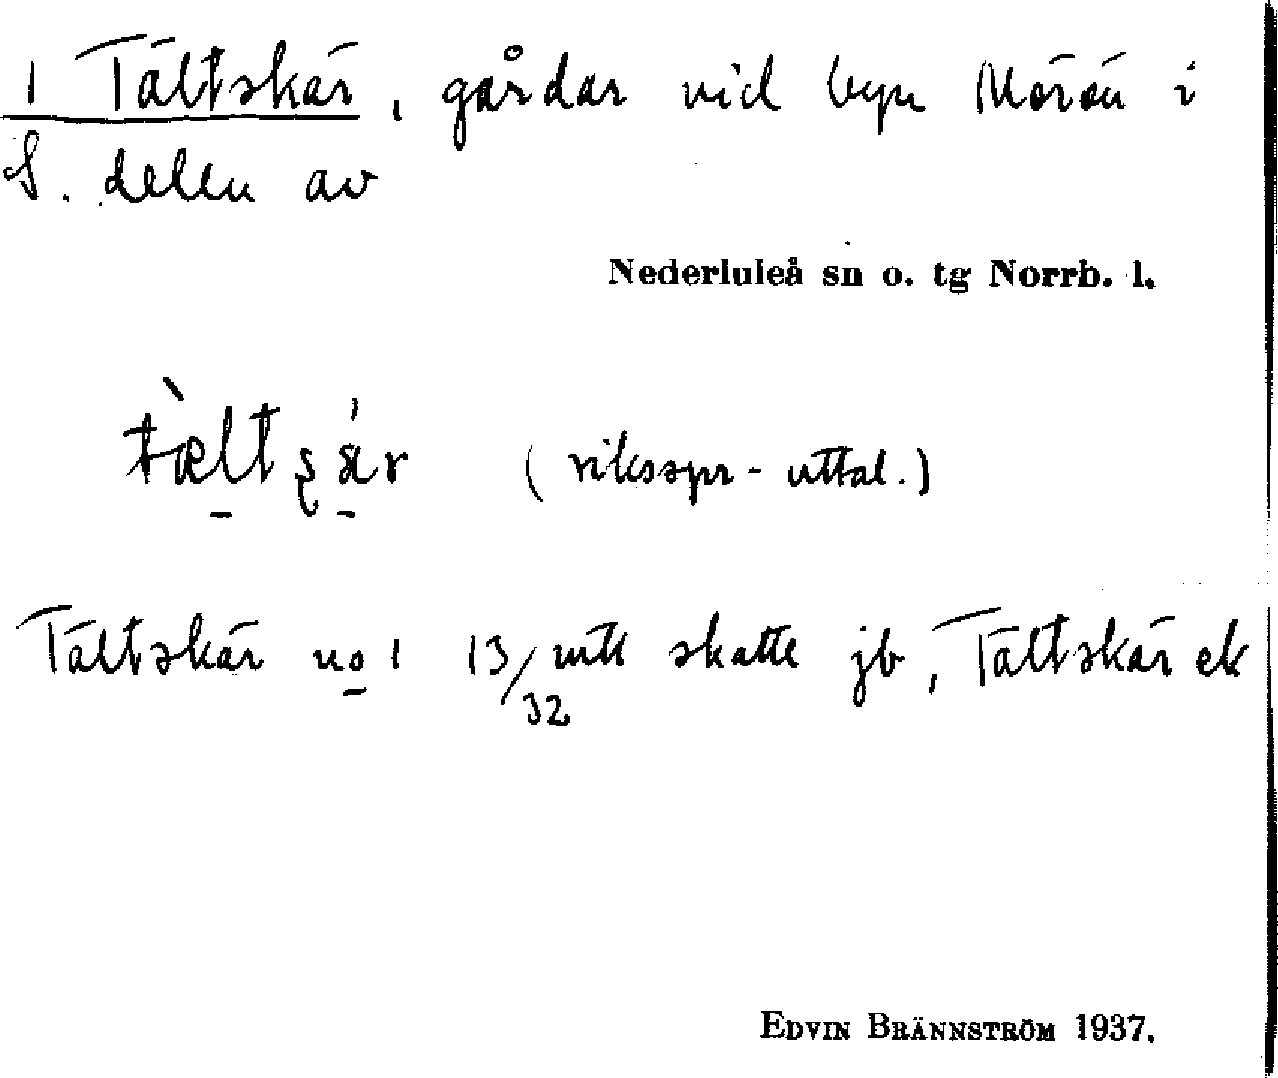 1 Tältskär, gårdar vid byn Mörön i
S. delen av
Nederluleå sn o. tg Norrb. l.
(riksspr-uttal.)
Tältskär no 1 13/32 mtl skatte jb, Tältskär ek
EDVIN BRÄNNSTRÖM 1937.